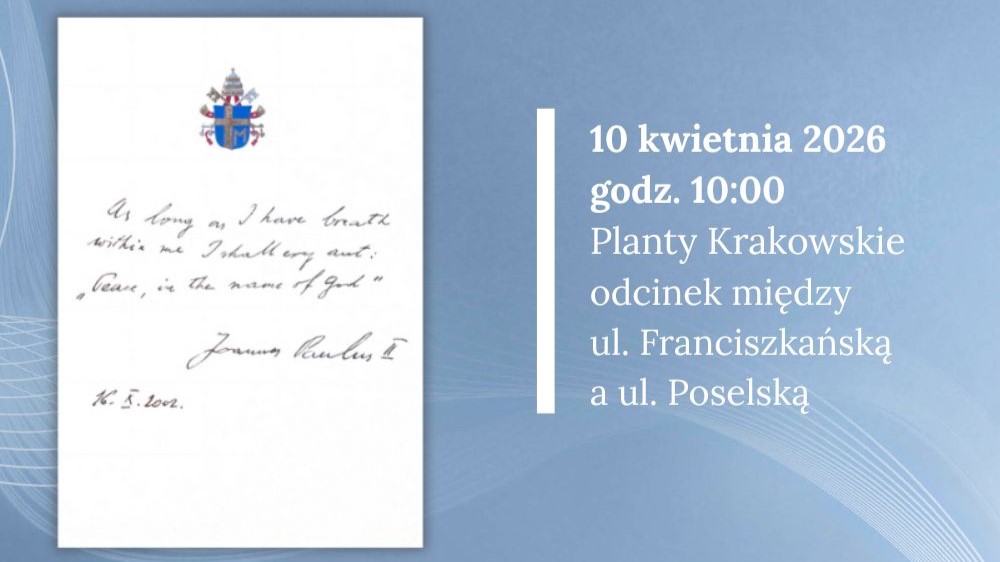 As long as I have breath
within me I shall cry out:
„Peace, in the name of God"
Joannes Paulus II
16. X. 2002.
10 kwietnia 2026
godz. 10:00
Planty Krakowskie
odcinek między
ul. Franciszkańską
a ul. Poselską